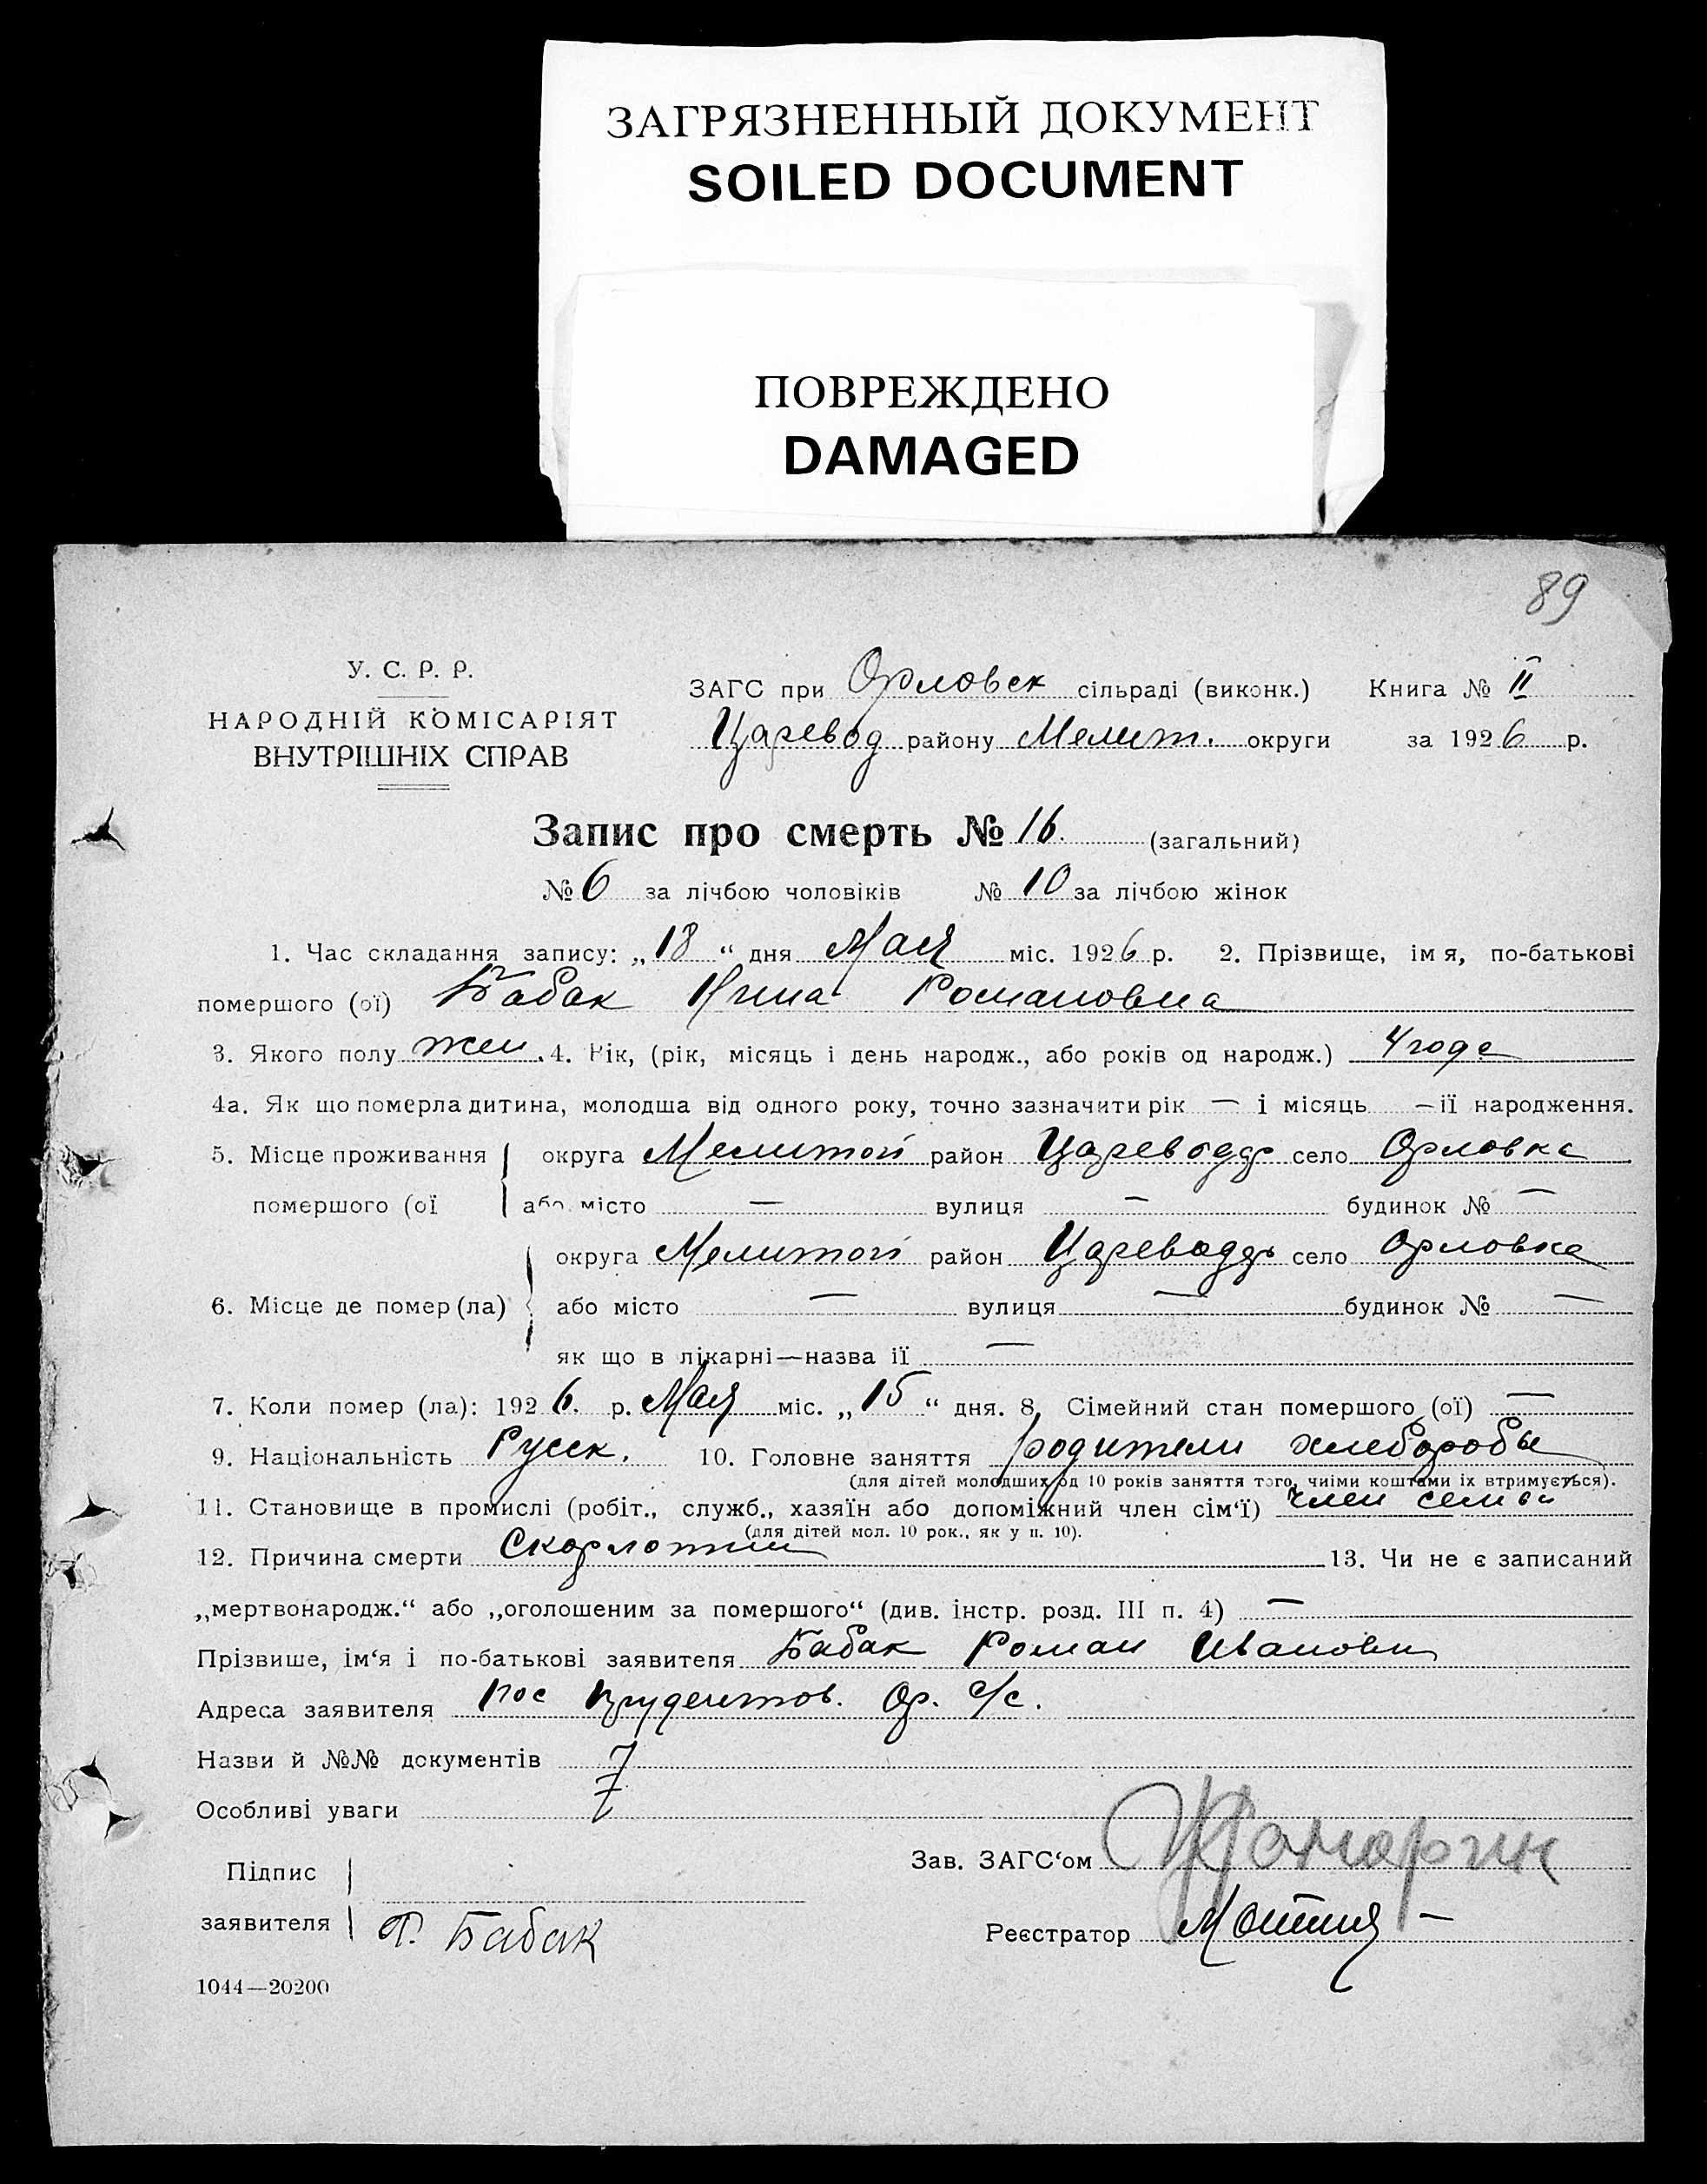 ЗАГРЯЗНЕННЫЙ ДОКУМЕНТ
SOILED DOCUMENT
ПОВРЕЖДЕНО
DAMAGED
89
У. С. Р. Р.
НАРОДНІЙ КОМІСАРІЯТ
ВНУТРІШНІХ СПРАВ
ЗАГС при Орловск сільраді (виконк.) Книга № II
Царевод району Мелит. округи за 1926 р.
Запис про смерть № 16. (загальний)
№ 6 за лічбою чоловіків № 10 за лічбою жінок
1. Час складання запису: „18“ дня Мая міс. 1926 р. 2. Прізвище, імя, по-батькові
помершого (ої) Бабак Нина Романовна
3. Якого полу жен. 4. Рік, (рік, місяць і день народж., або років од народж.) 4 года
4а. Як що померла дитина, молодша від одного року, точно зазначити рік — і місяць — її народження.
5. Місце проживання округа Мелитоп район Царевода село Орловка
помершого (ої або місто — вулиця — будинок № —
округа Мелитоп район Царевода село Орловка
6. Місце де помер (ла) або місто — вулиця — будинок № —
як що в лікарні—назва її —
7. Коли помер (ла): 1926. р. Мая міс. „15“ дня. 8. Сімейний стан помершого (ої) —
9. Національність Русск. 10. Головне заняття родители хлеборобы
(для дітей молодших од 10 років заняття того, чиїми коштами їх втримується).
11. Становище в промислі (робіт., служб., хазяїн або допоміжний член сім‘ї) член семьи
(для дітей мол. 10 рок., як у п. 10).
12. Причина смерти Скарлотина 13. Чи не є записаний
„мертвонародж.“ або „оголошеним за помершого“ (див. інстр. розд. III п. 4) —
Прізвише, ім‘я і по-батькові заявителя Бабак Роман Иванович
Адреса заявителя пос Ор. с/с.
Назви й №№ документів
Особливі уваги
Зав. ЗАГС‘ом
Підпис
заявителя Р. Бабак
Реєстратор
1044—20200